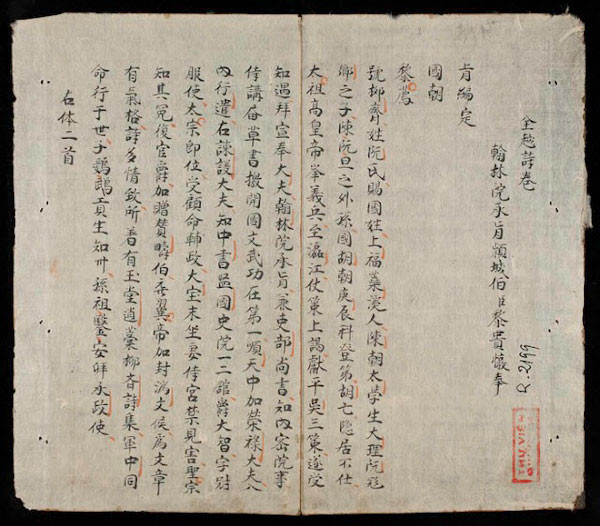 全越詩卷
翰林院承旨頴城伯臣黎貴惇奉
旨編定
國朝
黎廌
號抑斎姓阮氏賜國姓上福蘂溪人陳朝太學生大理阮飛
卿之子陳阮旦之外孫國胡朝庚辰科登第胡亡隐居不仕
太祖高皇帝峯義兵至瀘江仗策上謁獻平吳三策遂受
知遇拜宣奉大夫翰林院承旨兼吏部尚書知內密院事
侍講 草書檄開國文武功在第一順天中加榮祿大夫入
內行遣右諫議大夫知中書監國史院一二舘爵大智字尉
服侯太宗即位受顧命輔政大宝末坐妾侍宮禁見害聖宗
知其冤復官爵加贈賛疇伯 翼帝加封濟文侯為文章
有氣格詩多情致所着有玉堂逍藁抑斎詩集軍中詞
命行于世子鸚鵡貢生知州孫祖鑒安拜承政使
古体二首
R.2199